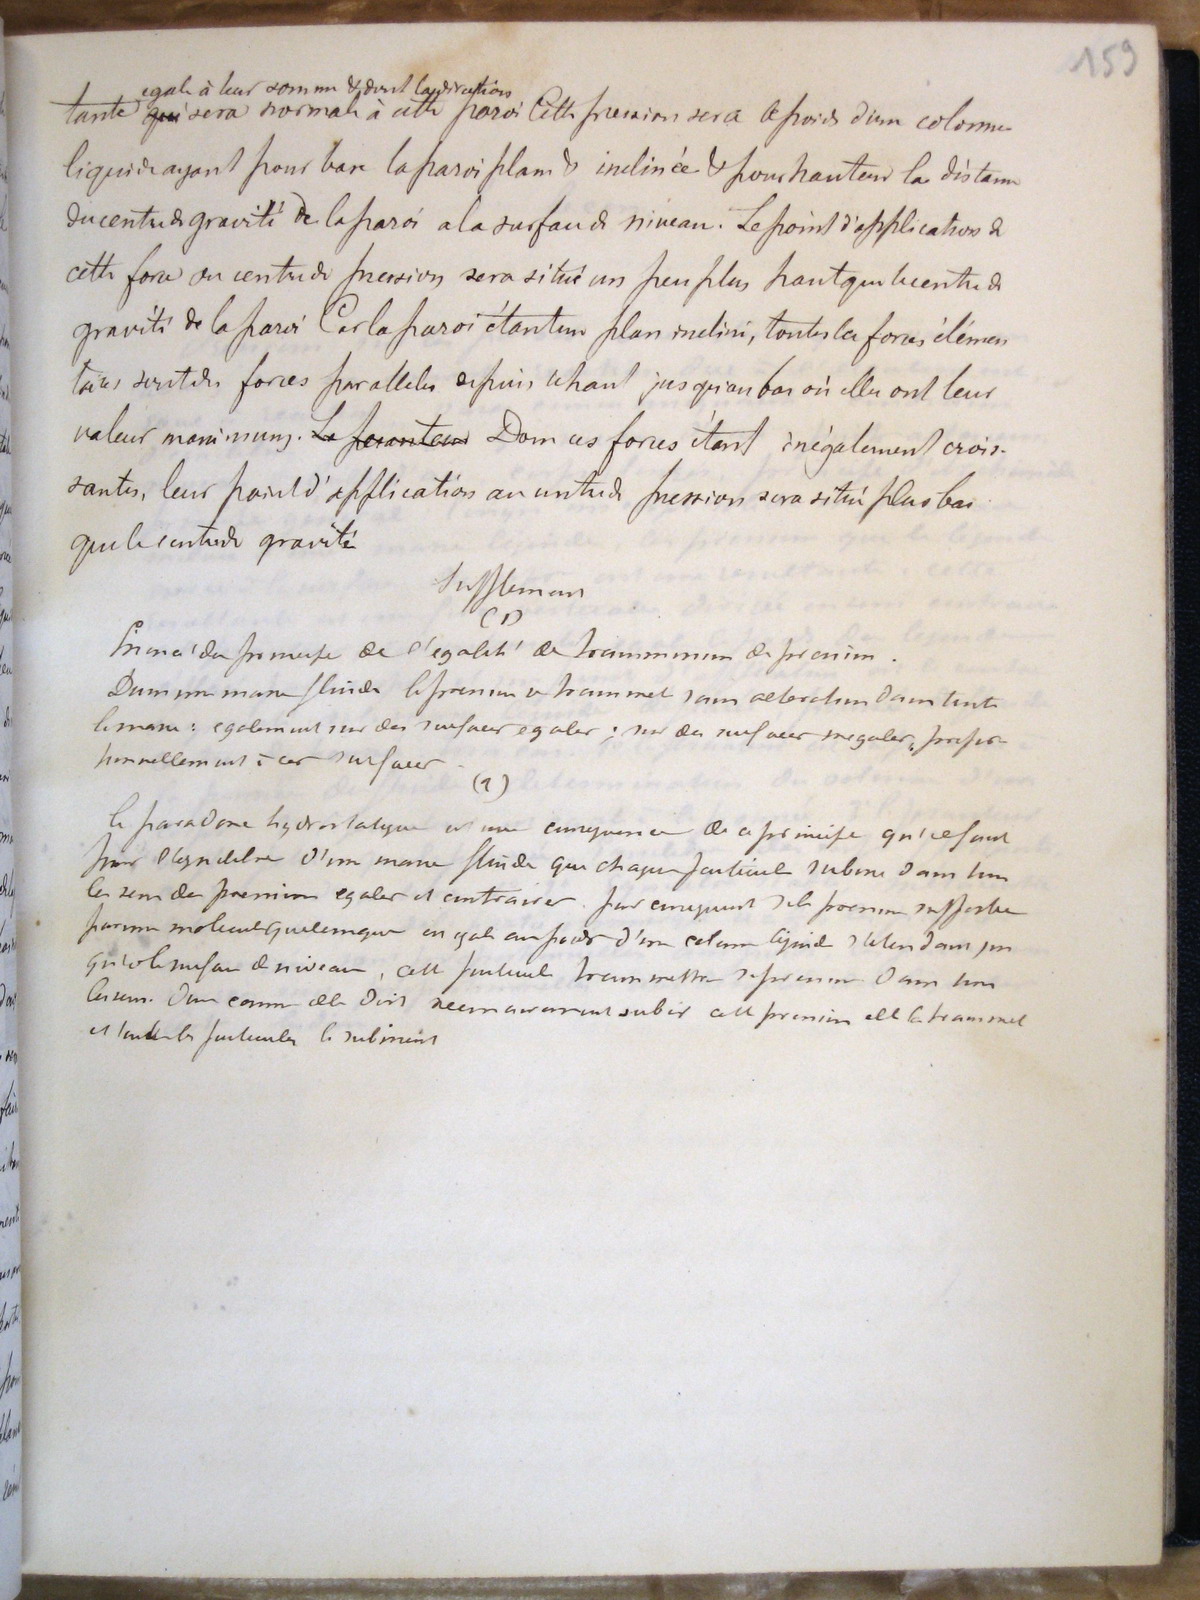 159
égale à leur somme & dont la direction
tante qui sera normale à cette paroi Cette pression sera le poids d'une colonne
liquide ayant pour base la paroi plane & inclinée & pour hauteur la distance
du centre de gravité de la paroi a la surface de niveau. Le point d'application de
cette force ou centre de pression sera situé un peu plus haut que le centre de
gravité de la paroi Car la paroi étant un plan incliné, toutes les forces élémen
taires sont des forces parallèles depuis le haut jusqu'au bas où elles ont leur
valeur maximum. La pesanteur Donc ces forces étant inégalement crois-
santes, leur point d'application au centre de pression sera situé plus bas
que le centre de gravité
Supplément
(1)
Énoncé du principe de l'égalité de transmission de pression.
Dans une masse fluide la pression se transmet sans altération dans toute
la masse: également sur des surfaces égales; sur des surfaces inégales, propor
tionnellement à ces surfaces
(2)
Le paradoxe hydrostatique est une conséquence de ce principe qu'il faut
pour l'équilibre d'une masse fluide que chaque particule subisse dans tous
les sens des pressions égales et contraires. par conséquent si la pression supportée
par une molécule quelconque est égale au poids d'une colonne liquide s'étendant jus
qu'à la surface de niveau, cette particule transmettra sa pression dans tous
les sens. Donc comme elle doit nécessairement subir cette pression elle la transmet
et toutes les particules la subissent